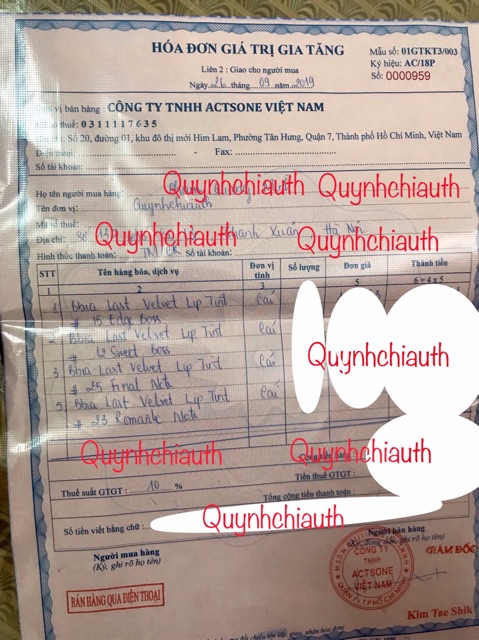 HÓA ĐƠN GIÁ TRỊ GIA TĂNG
Liên 2 : Giao cho người mua
Ngày 26 tháng 09 năm 2019
Mẫu số: 01GTKT3/003
Ký hiệu: AC/18P
Số: 0000959
vị bán hàng: CÔNG TY TNHH ACTSONE VIỆT NAM
thuế: 0311117635
Số 20, đường 01, khu đô thị mới Him Lam, Phường Tân Hưng, Quận 7, Thành phố Hồ Chí Minh, Việt Nam
Điện thoại: - Fax:
Số tài khoản:
Họ tên người mua hàng: Quynhchiauth Quynhchiauth
Tên đơn vị: Quynhchiauth
Mã số thuế:
Địa chỉ: Quynhchiauth Xuân Hà Nội Quynhchiauth
Hình thức thanh toán: TM/CK Số tài khoản:
STT Tên hàng hóa, dịch vụ Đơn vị tính Số lượng Đơn giá Thành tiền
1 2 3 5 6=4x5
1 Bbia Last Velvet Lip Tint Cái
# 15 Edge Boss
2 Bbia Last Velvet Lip Tint Cái
# 12 Sweet Boss
Quynhchiauth
3 Bbia Last Velvet Lip Tint Cái
# 25 Final Note
5 Bbia Last Velvet Lip Tint Cái
# 23 Romantic Note
Quynhchiauth Quynhchiauth
Thuế suất GTGT: 10 % Tiền thuế GTGT:
Tổng cộng tiền thanh toán
Số tiền viết bằng chữ: Quynhchiauth
Người mua hàng
(Ký, ghi rõ họ tên)
Người bán hàng
GIÁM ĐỐC
BÁN HÀNG QUA ĐIỆN THOẠI
CÔNG TY
TNHH
ACTSONE
VIỆT NAM
Kim Tae Shik